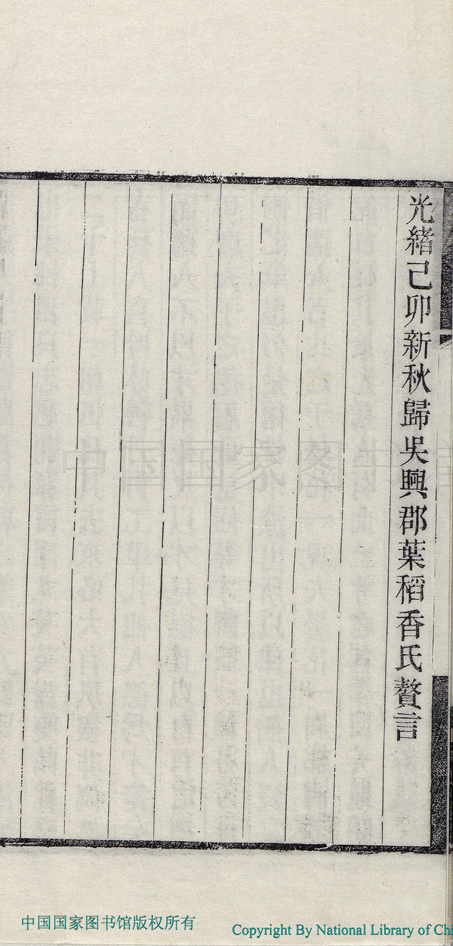 光緒己卯新秋歸吳興郡葉稻香氏贅言
中国国家图书馆
中国国家图书馆版权所有
Copyright By National Library of Ch